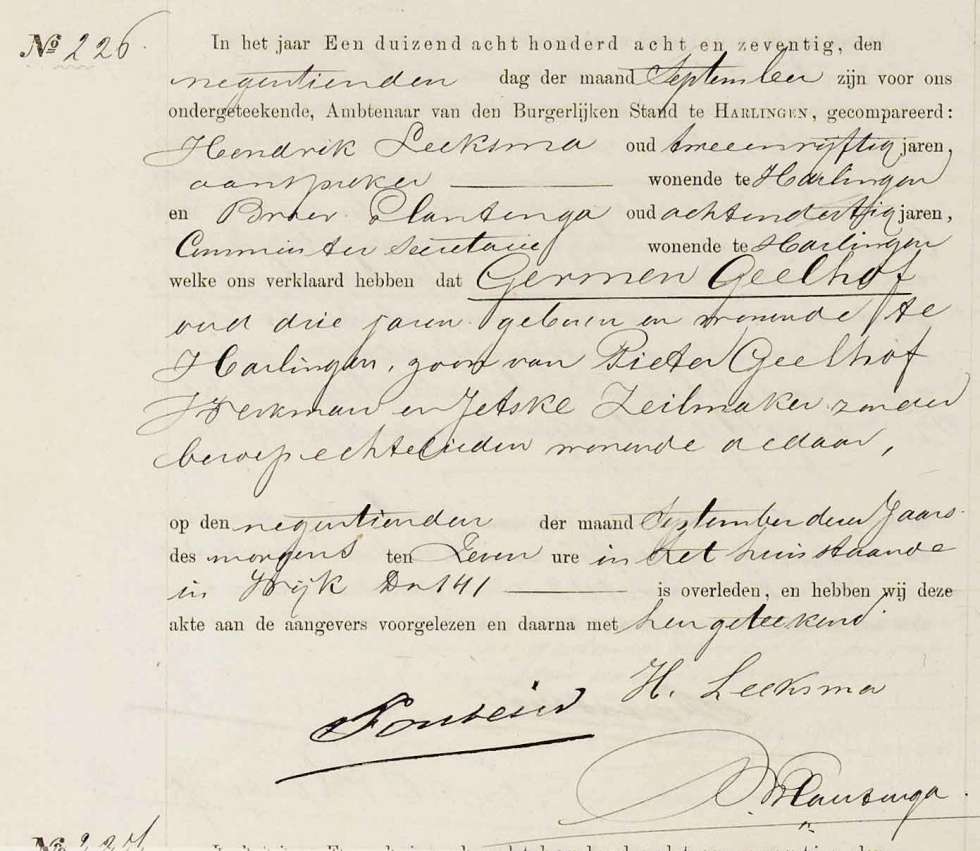 No 226.
In het jaar Een duizend acht honderd acht en zeventig, den
negentienden dag der maand September zijn voor ons
ondergeteekende, Ambtenaar van den Burgerlijken Stand te Harlingen, gecompareerd:
Hendrik Leeksma oud tweeenvijftig jaren,
aanspreker wonende te Harlingen
en Plantenga oud achtendertig jaren,
Commies ter Secretarie wonende te Harlingen
welke ons verklaard hebben dat Germen Geelhof
oud drie jaren geboren en wonende te
Harlingen, zoon van Pieter Geelhof
Werkman en Jetske Zeilmaker zonder
beroep echtelieden wonende aldaar,
op den negentienden der maand September dezes Jaars
des morgens ten Zeven ure in het huis staande
in Wijk D n 141 is overleden, en hebben wij deze
akte aan de aangevers voorgelezen en daarna met hen geteekend
H. Leeksma
Fontein
Plantenga.
No 227